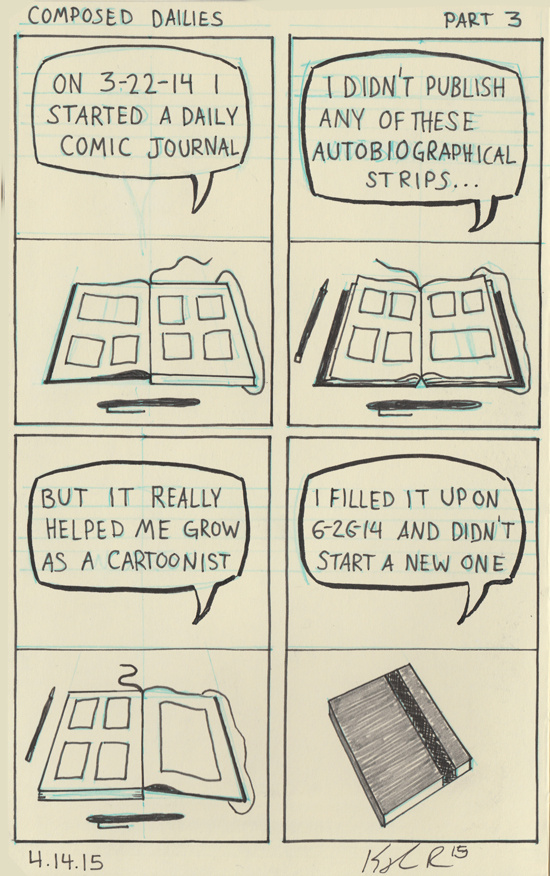 COMPOSED DAILIES
PART 3
ON 3-22-14 I
STARTED A DAILY
COMIC JOURNAL
I DIDN'T PUBLISH
ANY OF THESE
AUTOBIOGRAPHICAL
STRIPS...
BUT IT REALLY
HELPED ME GROW
AS A CARTOONIST
I FILLED IT UP ON
6-26-14 AND DIDN'T
START A NEW ONE
4.14.15
15